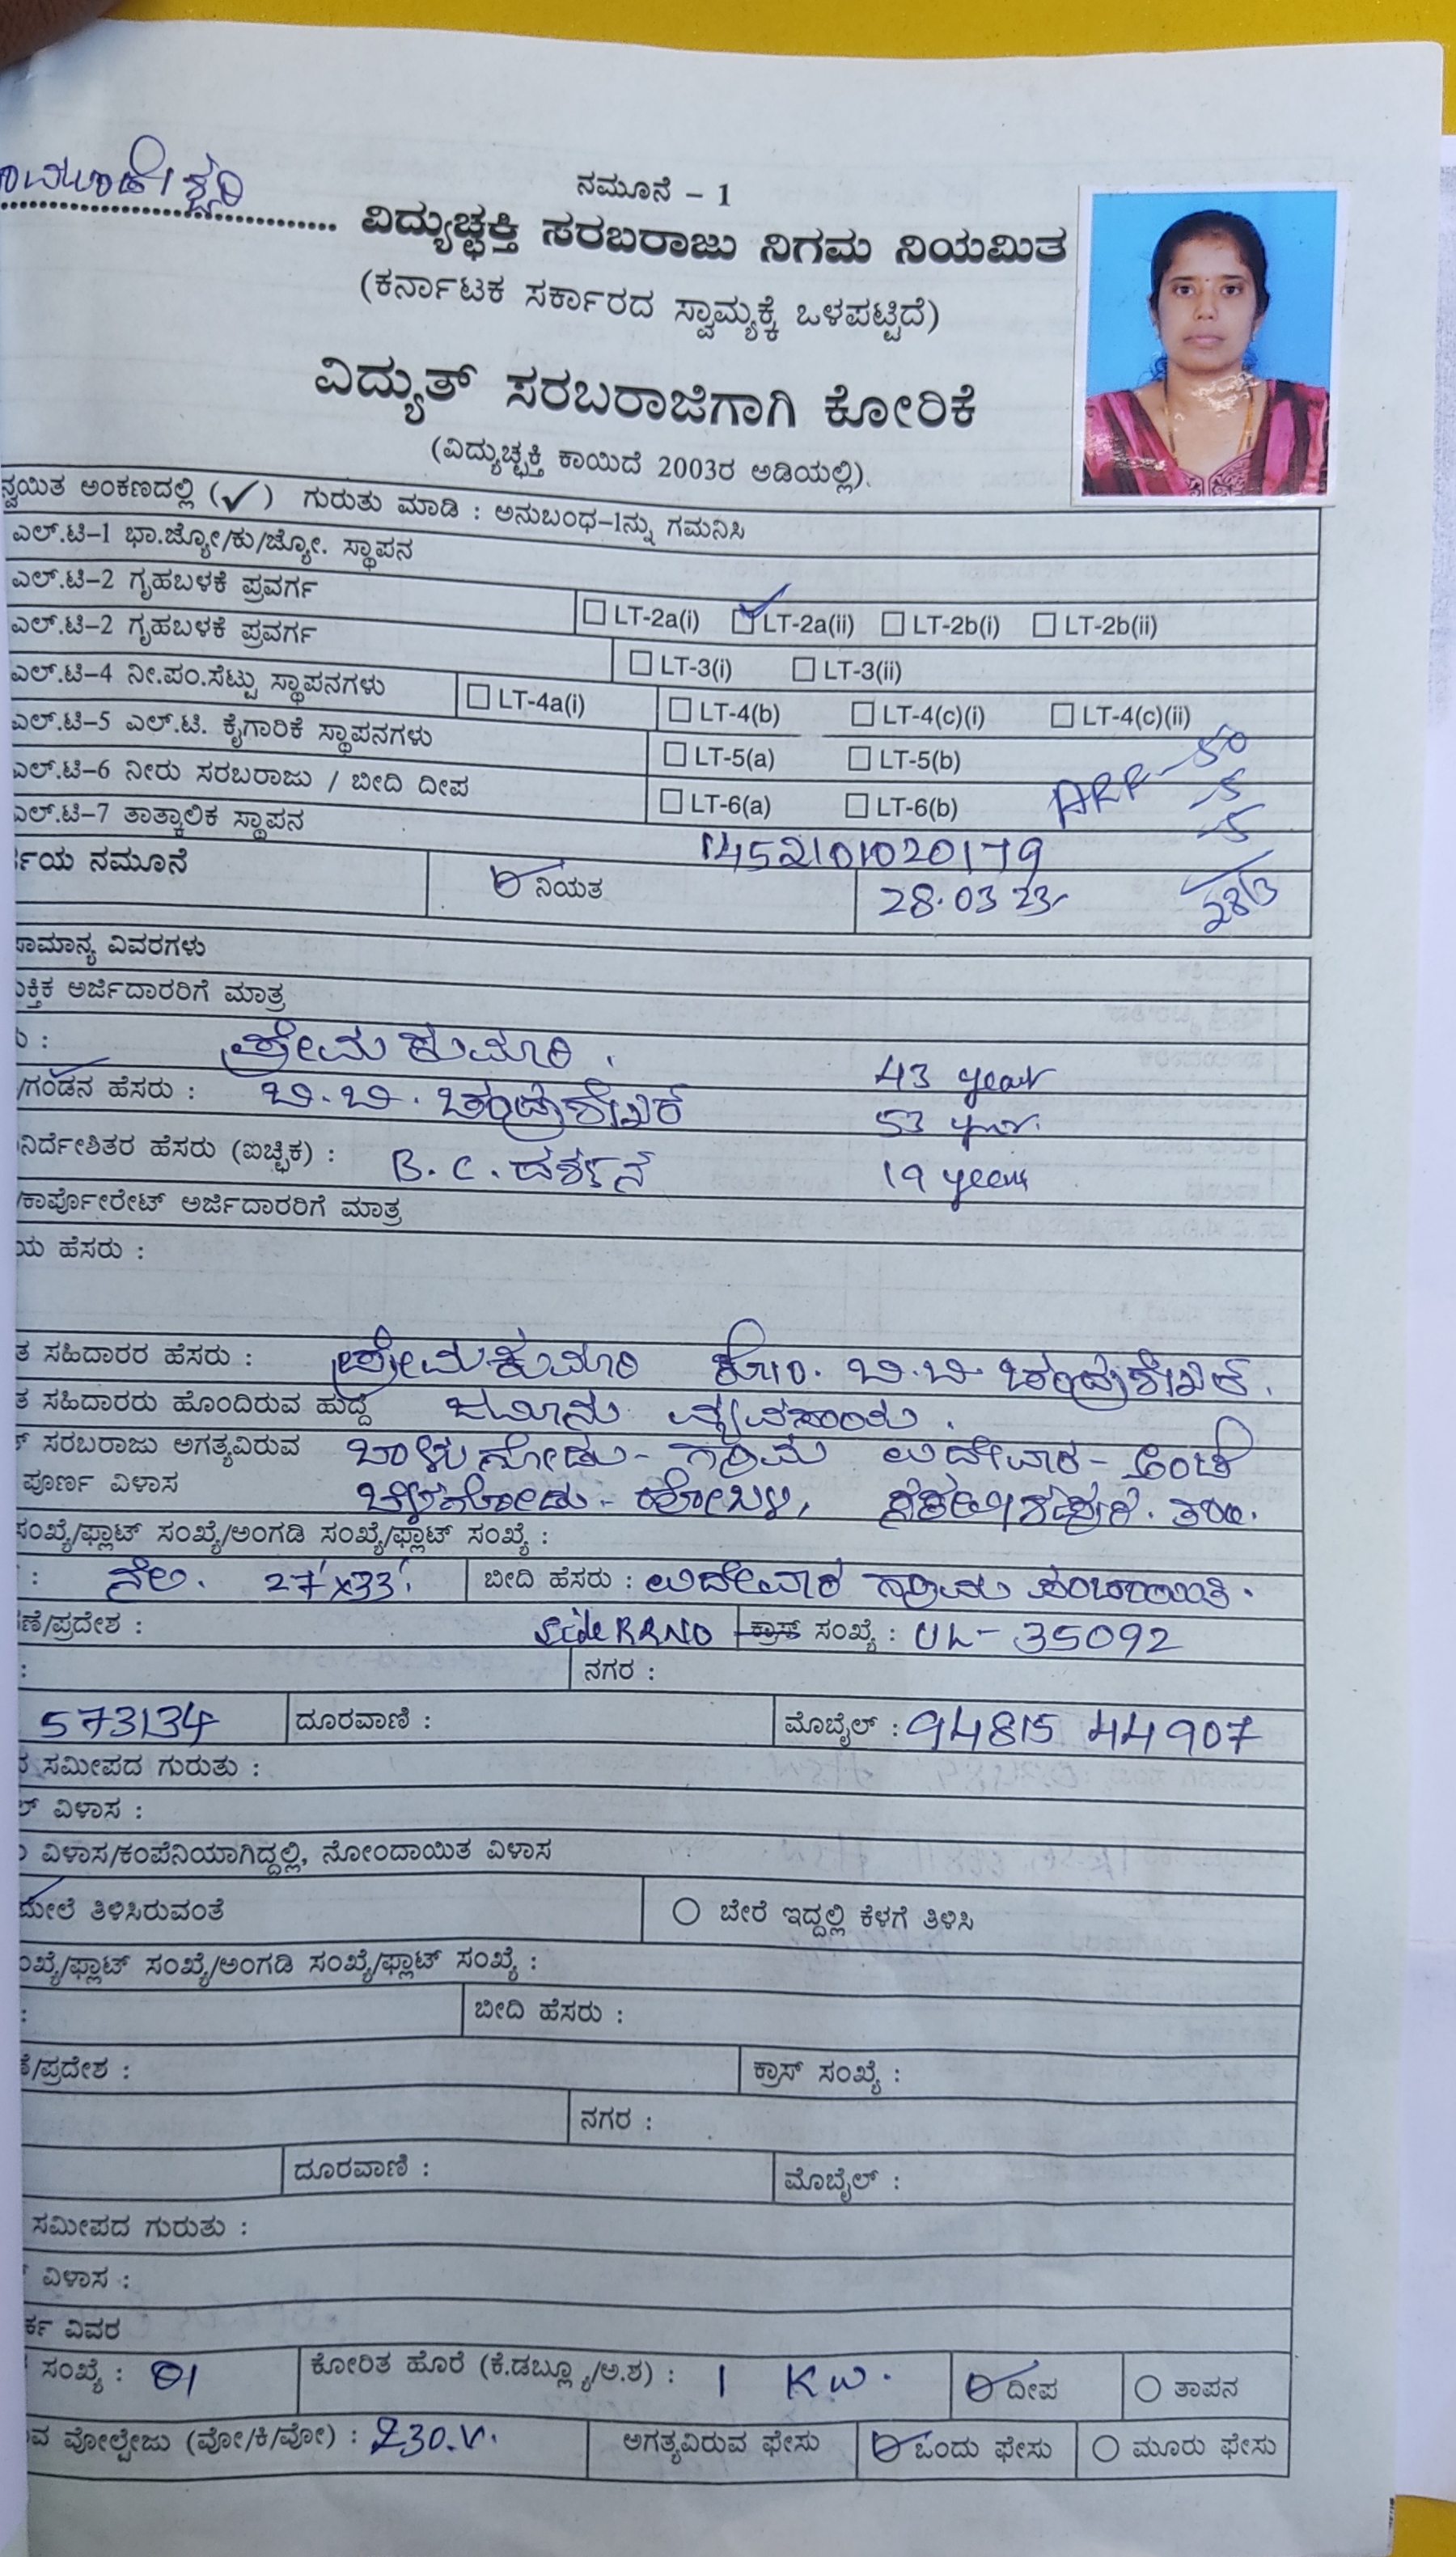 ನಮೂನೆ – 1
ವಿದ್ಯುಚ್ಛಕ್ತಿ ಸರಬರಾಜು ನಿಗಮ ನಿಯಮಿತ
(ಕರ್ನಾಟಕ ಸರ್ಕಾರದ ಸ್ವಾಮ್ಯಕ್ಕೆ ಒಳಪಟ್ಟಿದೆ)
ವಿದ್ಯುತ್ ಸರಬರಾಜಿಗಾಗಿ ಕೋರಿಕೆ
(ವಿದ್ಯುಚ್ಛಕ್ತಿ ಕಾಯಿದೆ 2003ರ ಅಡಿಯಲ್ಲಿ).
ನ್ವಯಿತ ಅಂಕಣದಲ್ಲಿ (✓) ಗುರುತು ಮಾಡಿ : ಅನುಬಂಧ–1ನ್ನು ಗಮನಿಸಿ
ಎಲ್.ಟಿ–1 ಭಾ.ಜ್ಯೋ/ಕು/ಜ್ಯೋ. ಸ್ಥಾಪನ
ಎಲ್.ಟಿ–2 ಗೃಹಬಳಕೆ ಪ್ರವರ್ಗ LT-2a(i) LT-2a(ii) LT-2b(i) LT-2b(ii)
ಎಲ್.ಟಿ–2 ಗೃಹಬಳಕೆ ಪ್ರವರ್ಗ LT-3(i) LT-3(ii)
ಎಲ್.ಟಿ–4 ನೀ.ಪಂ.ಸೆಟ್ಟು ಸ್ಥಾಪನಗಳು LT-4a(i) LT-4(b) LT-4(c)(i) LT-4(c)(ii)
ಎಲ್.ಟಿ–5 ಎಲ್.ಟಿ. ಕೈಗಾರಿಕೆ ಸ್ಥಾಪನಗಳು LT-5(a) LT-5(b) 50
ಎಲ್.ಟಿ–6 ನೀರು ಸರಬರಾಜು / ಬೀದಿ ದೀಪ LT-6(a) LT-6(b) ARF 5
ಎಲ್.ಟಿ–7 ತಾತ್ಕಾಲಿಕ ಸ್ಥಾಪನ 5
ನಮೂನೆ ನಿಯತ 28.03 23 28/3
ಸಾಮಾನ್ಯ ವಿವರಗಳು
ಅರ್ಜಿದಾರರಿಗೆ ಮಾತ್ರ
ಪ್ರೇಮಕುಮಾರಿ . 43 year
/ಗಂಡನ ಹೆಸರು : ಬಿ.ಬಿ. ಚಂದ್ರಶೇಖರ್ 53
ನಿರ್ದೇಶಿತರ ಹೆಸರು (ಐಚ್ಛಿಕ) : B.C. ದರ್ಶನ್ 19 years
/ಕಾರ್ಪೋರೇಟ್ ಅರ್ಜಿದಾರರಿಗೆ ಮಾತ್ರ
ಯ ಹೆಸರು :
ತ ಸಹಿದಾರರ ಹೆಸರು : ಪ್ರೇಮಕುಮಾರಿ ಕೋಂ. ಬಿ.ಬಿ ಚಂದ್ರಶೇಖರ್.
ತ ಸಹಿದಾರರು ಹೊಂದಿರುವ ಹುದ್ದೆ ಜಮೀನು ವ್ಯವಸಾಯ .
ಸರಬರಾಜು ಅಗತ್ಯವಿರುವ ಗ್ರಾಮ ಉದೇವಾರ- ಅಂಚೆ
ಪೂರ್ಣ ವಿಳಾಸ ಬೆಳಗೋಡು- ಹೋಬಳಿ, ಸಕಲೇಶಪುರ. ತಾಲ.
ಸಂಖ್ಯೆ/ಫ್ಲಾಟ್ ಸಂಖ್ಯೆ/ಅಂಗಡಿ ಸಂಖ್ಯೆ/ಫ್ಲಾಟ್ ಸಂಖ್ಯೆ :
: ನೆಲ. 27'x33' ಬೀದಿ ಹೆಸರು : ಉದೇವಾರ ಗ್ರಾಮ ಪಂಚಾಯಿತಿ.
ಣೆ/ಪ್ರದೇಶ : Side RRNO ಕ್ರಾಸ್ ಸಂಖ್ಯೆ : UL- 35092
: ನಗರ :
573134 ದೂರವಾಣಿ : ಮೊಬೈಲ್ : 94815 44907
ಸಮೀಪದ ಗುರುತು :
ವಿಳಾಸ :
ವಿಳಾಸ/ಕಂಪೆನಿಯಾಗಿದ್ದಲ್ಲಿ, ನೋಂದಾಯಿತ ವಿಳಾಸ
ಮೇಲೆ ತಿಳಿಸಿರುವಂತೆ ಬೇರೆ ಇದ್ದಲ್ಲಿ ಕೆಳಗೆ ತಿಳಿಸಿ
ಂಖ್ಯೆ/ಫ್ಲಾಟ್ ಸಂಖ್ಯೆ/ಅಂಗಡಿ ಸಂಖ್ಯೆ/ಫ್ಲಾಟ್ ಸಂಖ್ಯೆ :
: ಬೀದಿ ಹೆಸರು :
/ಪ್ರದೇಶ : ಕ್ರಾಸ್ ಸಂಖ್ಯೆ :
ನಗರ :
ದೂರವಾಣಿ : ಮೊಬೈಲ್ :
ಸಮೀಪದ ಗುರುತು :
ವಿಳಾಸ :
ರ್ಕ ವಿವರ
ಸಂಖ್ಯೆ : 01 ಕೋರಿತ ಹೊರೆ (ಕೆ.ಡಬ್ಲ್ಯೂ/ಅ.ಶ) : 1 KW. ದೀಪ ತಾಪನ
ವ ವೋಲ್ಟೇಜು (ವೋ/ಕಿ/ವೋ) : 230.V. ಅಗತ್ಯವಿರುವ ಫೇಸು ಒಂದು ಫೇಸು ಮೂರು ಫೇಸು